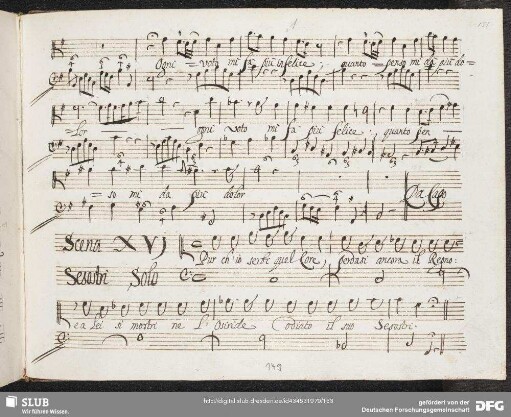 ogni voto mi fa più infelice, quanto penso mi dà più do=
=lor ogni voto mi fa più felice, quanto pen
=so mi da più dolor Da Capo
Scena XVI
Pur ch'io senta quel Core, perdasi ancora il Regno.
Sesostri Solo
e a lei si mostri ne l' Osiride il suo Sesostri.
149
SLUB
Wir führen Wissen.
gefördert von der
Deutschen Forschungsgemeinschaft
DFG